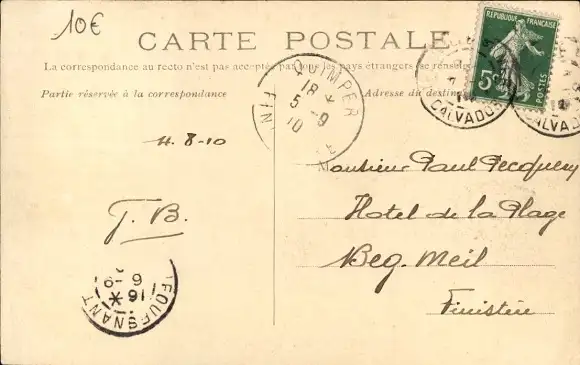 10€
CARTE POSTALE
La correspondance au recto n'est pas acceptée par tous les pays étrangers (se renseig
Partie réservée à la correspondance
Adresse du destin
REPUBLIQUE FRANÇAISE
5c
POSTES
CALVADOS
CALVADOS
QUIMPER
18 *
5-9
10
FIN
4. 8-10
J. B.
Monsieur Paul
Hotel de la Plage
Beg. Meil
Finistère
FOUESNANT
6-9